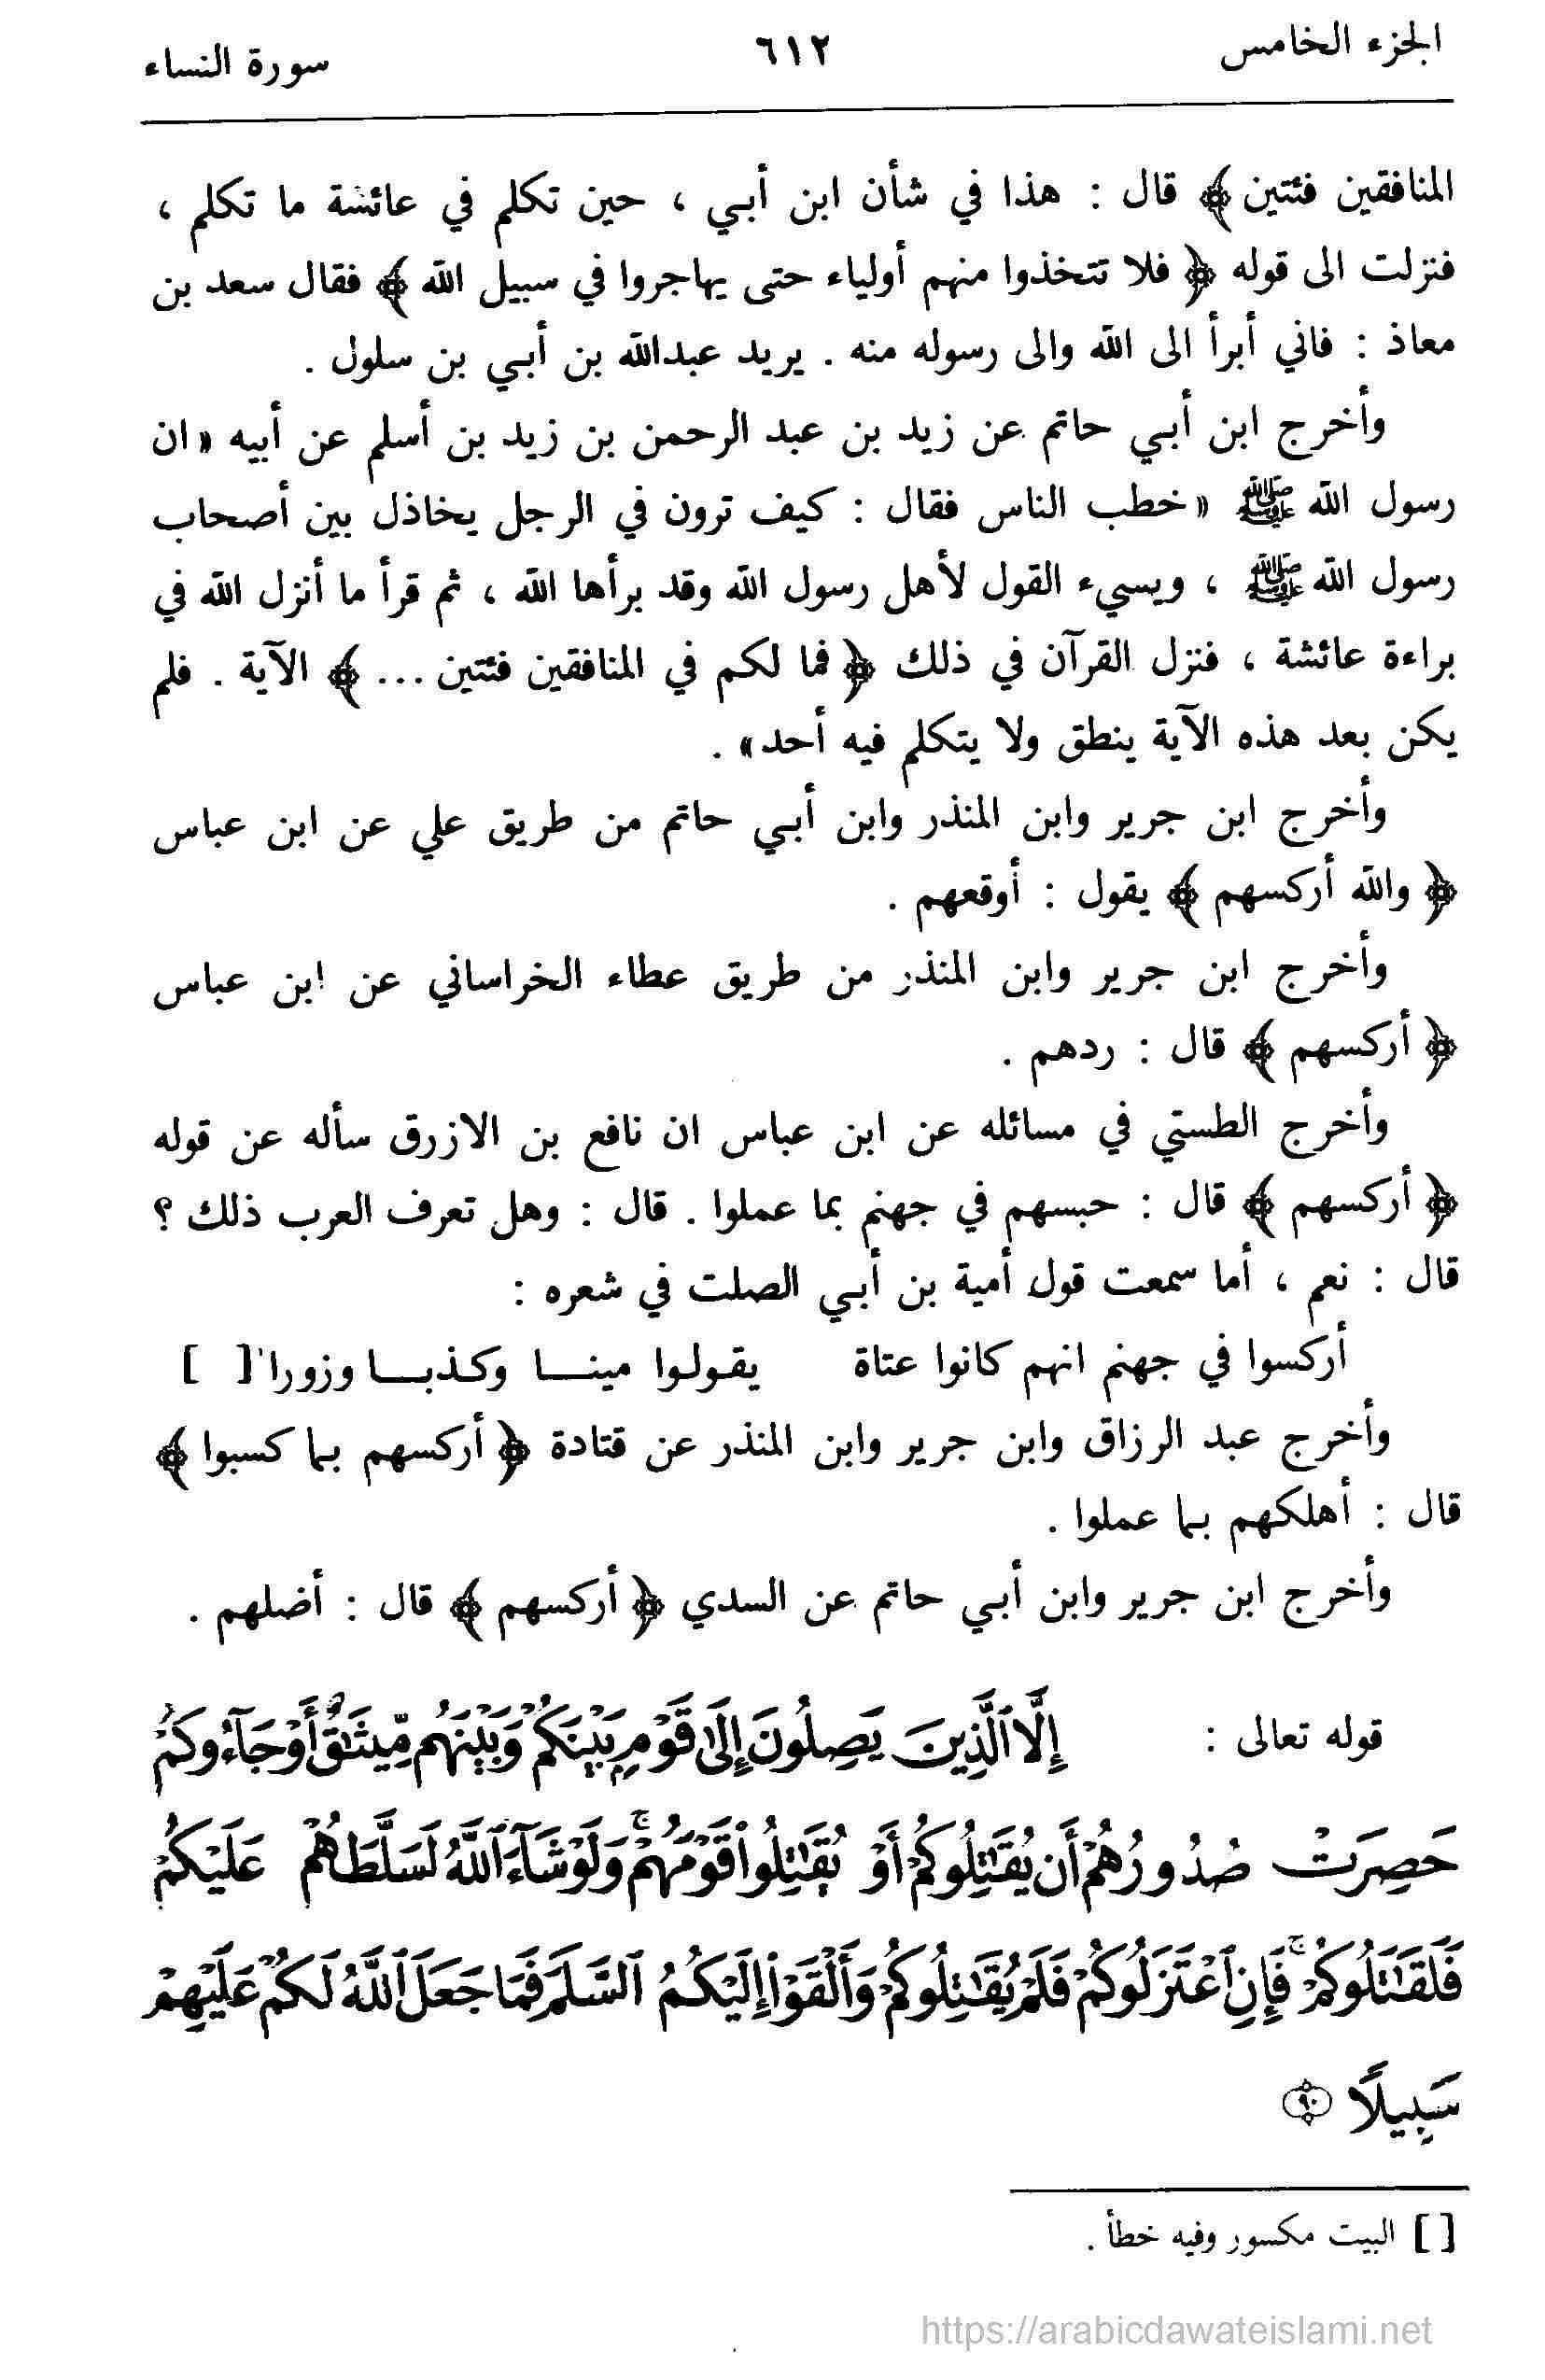 الجزء الخامس ٦١٢ سورة النساء
المنافقين فئتين ﴾ قال : هذا في شأن ابن أبي ، حين تكلم في عائشة ما تكلم ،
فنزلت الى قوله ﴿ فلا تتخذوا منهم أولياء حتى يهاجروا في سبيل الله ﴾ فقال سعد بن
معاذ : فاني أبرأ الى الله والى رسوله منه . يريد عبدالله بن أبي بن سلول .
وأخرج ابن أبي حاتم عن زيد بن عبد الرحمن بن زيد بن أسلم عن أبيه « ان
رسول الله ﷺ « خطب الناس فقال : كيف ترون في الرجل يخاذل بين أصحاب
رسول الله ﷺ ، ويسيء القول لأهل رسول الله وقد برأها الله ، ثم قرأ ما أنزل الله في
براءة عائشة ، فنزل القرآن في ذلك ﴿ فما لكم في المنافقين فئتين ... ﴾ الآية . فلم
يكن بعد هذه الآية ينطق ولا يتكلم فيه أحد» .
وأخرج ابن جرير وابن المنذر وابن أبي حاتم من طريق علي عن ابن عباس
﴿ والله أركسهم ﴾ يقول : أوقعهم .
وأخرج ابن جرير وابن المنذر من طريق عطاء الخراساني عن ابن عباس
﴿ أركسهم ﴾ قال : ردهم .
وأخرج الطستي في مسائله عن ابن عباس ان نافع بن الازرق سأله عن قوله
﴿ أركسهم ﴾ قال : حبسهم في جهنم بما عملوا . قال : وهل تعرف العرب ذلك ؟
قال : نعم ، أما سمعت قول أمية بن أبي الصلت في شعره :
أركسوا في جهنم انهم كانوا عتاة يقولوا مينـــا وكذبـــا وزورا [ ]
وأخرج عبد الرزاق وابن جرير وابن المنذر عن قتادة ﴿ أركسهم بما كسبوا ﴾
قال : أهلكهم بما عملوا .
وأخرج ابن جرير وابن أبي حاتم عن السدي ﴿ أركسهم ﴾ قال : أضلهم .
قوله تعالى : إِلَّا ٱلَّذِينَ يَصِلُونَ إِلَىٰ قَوْمٍۭ بَيْنَكُمْ وَبَيْنَهُم مِّيثَٰقٌ أَوْ جَآءُوكُمْ
حَصِرَتْ صُدُورُهُمْ أَن يُقَٰتِلُوكُمْ أَوْ يُقَٰتِلُوا۟ قَوْمَهُمْ ۚ وَلَوْ شَآءَ ٱللَّهُ لَسَلَّطَهُمْ عَلَيْكُمْ
فَلَقَٰتَلُوكُمْ ۚ فَإِنِ ٱعْتَزَلُوكُمْ فَلَمْ يُقَٰتِلُوكُمْ وَأَلْقَوْا۟ إِلَيْكُمُ ٱلسَّلَمَ فَمَا جَعَلَ ٱللَّهُ لَكُمْ عَلَيْهِمْ
سَبِيلًا ۝٩٠
[ ] البيت مكسور وفيه خطأ .
https://arabicdawateislami.net